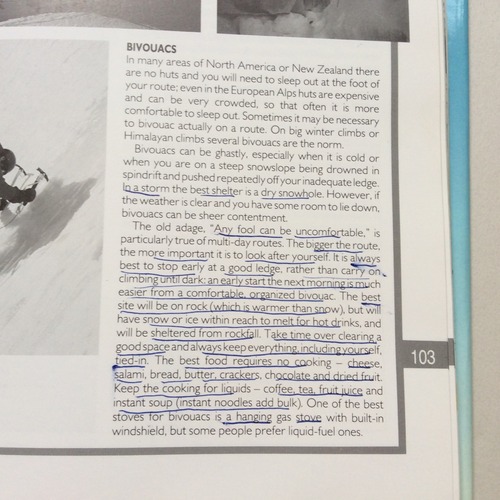 BIVOUACS
In many areas of North America or New Zealand there
are no huts and you will need to sleep out at the foot of
your route; even in the European Alps huts are expensive
and can be very crowded, so that often it is more
comfortable to sleep out. Sometimes it may be necessary
to bivouac actually on a route. On big winter climbs or
Himalayan climbs several bivouacs are the norm.
Bivouacs can be ghastly, especially when it is cold or
when you are on a steep snowslope being drowned in
spindrift and pushed repeatedly off your inadequate ledge.
In a storm the best shelter is a dry snowhole. However, if
the weather is clear and you have some room to lie down,
bivouacs can be sheer contentment.
The old adage, “Any fool can be uncomfortable,” is
particularly true of multi-day routes. The bigger the route,
the more important it is to look after yourself. It is always
best to stop early at a good ledge, rather than carry on
climbing until dark: an early start the next morning is much
easier from a comfortable, organized bivouac. The best
site will be on rock (which is warmer than snow), but will
have snow or ice within reach to melt for hot drinks, and
will be sheltered from rockfall. Take time over clearing a
good space and always keep everything, including yourself,
tied-in. The best food requires no cooking – cheese,
salami, bread, butter, crackers, chocolate and dried fruit.
Keep the cooking for liquids – coffee, tea, fruit juice and
instant soup (instant noodles add bulk). One of the best
stoves for bivouacs is a hanging gas stove with built-in
windshield, but some people prefer liquid-fuel ones.
103